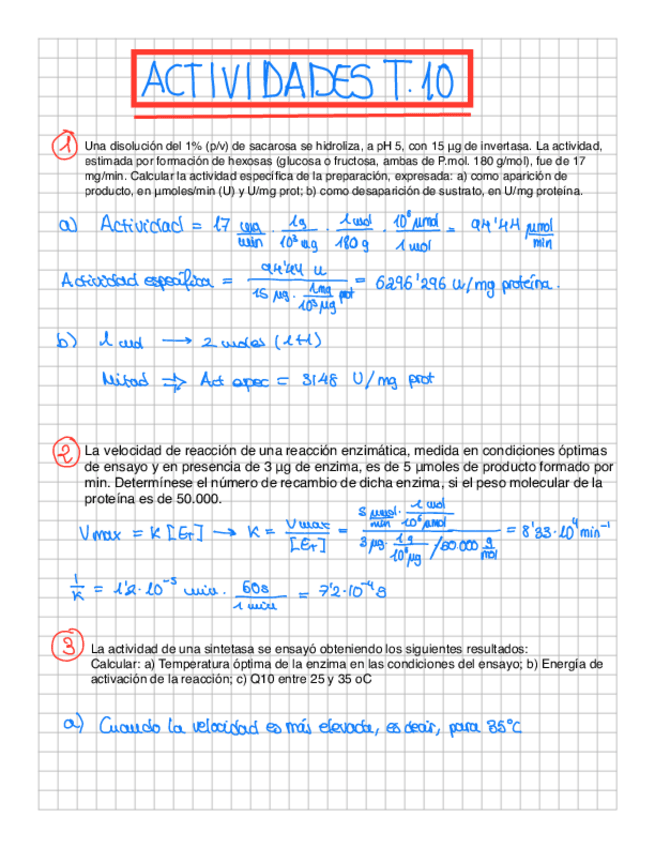 ACTIVIDADES T.10
1 Una disolución del 1% (p/v) de sacarosa se hidroliza, a pH 5, con 15 µg de invertasa. La actividad,
estimada por formación de hexosas (glucosa o fructosa, ambas de P.mol. 180 g/mol), fue de 17
mg/min. Calcular la actividad específica de la preparación, expresada: a) como aparición de
producto, en µmoles/min (U) y U/mg prot; b) como desaparición de sustrato, en U/mg proteína.
a) Actividad = 17 mg/min · 1g/10³ mg · 1 mol/180 g · 10⁶ µmol/1 mol = 94'44 µmol/min
Actividad específica = 94'44 U / 15 µg · 1mg/10³ µg prot = 6296'296 U/mg proteína.
b) 1 mol → 2 moles (1+1)
Mitad ⇒ Act espec = 3148 U/mg prot
2 La velocidad de reacción de una reacción enzimática, medida en condiciones óptimas
de ensayo y en presencia de 3 µg de enzima, es de 5 µmoles de producto formado por
min. Determínese el número de recambio de dicha enzima, si el peso molecular de la
proteína es de 50.000.
Vmax = K [ET] → K = Vmax/[ET] = 5 µmol/min · 1 mol/10⁶ µmol / 3 µg · 1 g/10⁶ µg /50.000 g/mol = 8'33·10⁴ min⁻¹
1/K = 1'2·10⁻⁵ min · 60s/1 min = 7'2·10⁻⁴ s
3 La actividad de una sintetasa se ensayó obteniendo los siguientes resultados:
Calcular: a) Temperatura óptima de la enzima en las condiciones del ensayo; b) Energía de
activación de la reacción; c) Q10 entre 25 y 35 oC
a) Cuando la velocidad es más elevada, es decir, para 35°C